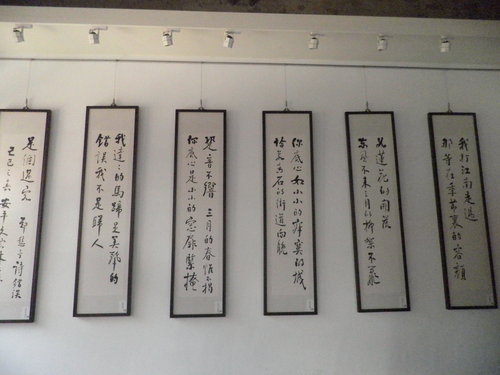 我打江南走過
那等在季節裏的容顏
如蓮花的開落
東風不來三月的柳絮不飛
你底心如小小的寂寞的城
恰若青石的街道向晚
跫音不響 三月的春帷不揭
你底心是小小的窗扉緊掩
我達々的馬蹄是美麗的
錯誤我不是歸人
是個過客 鄭愁予詩錯誤
己巳之春